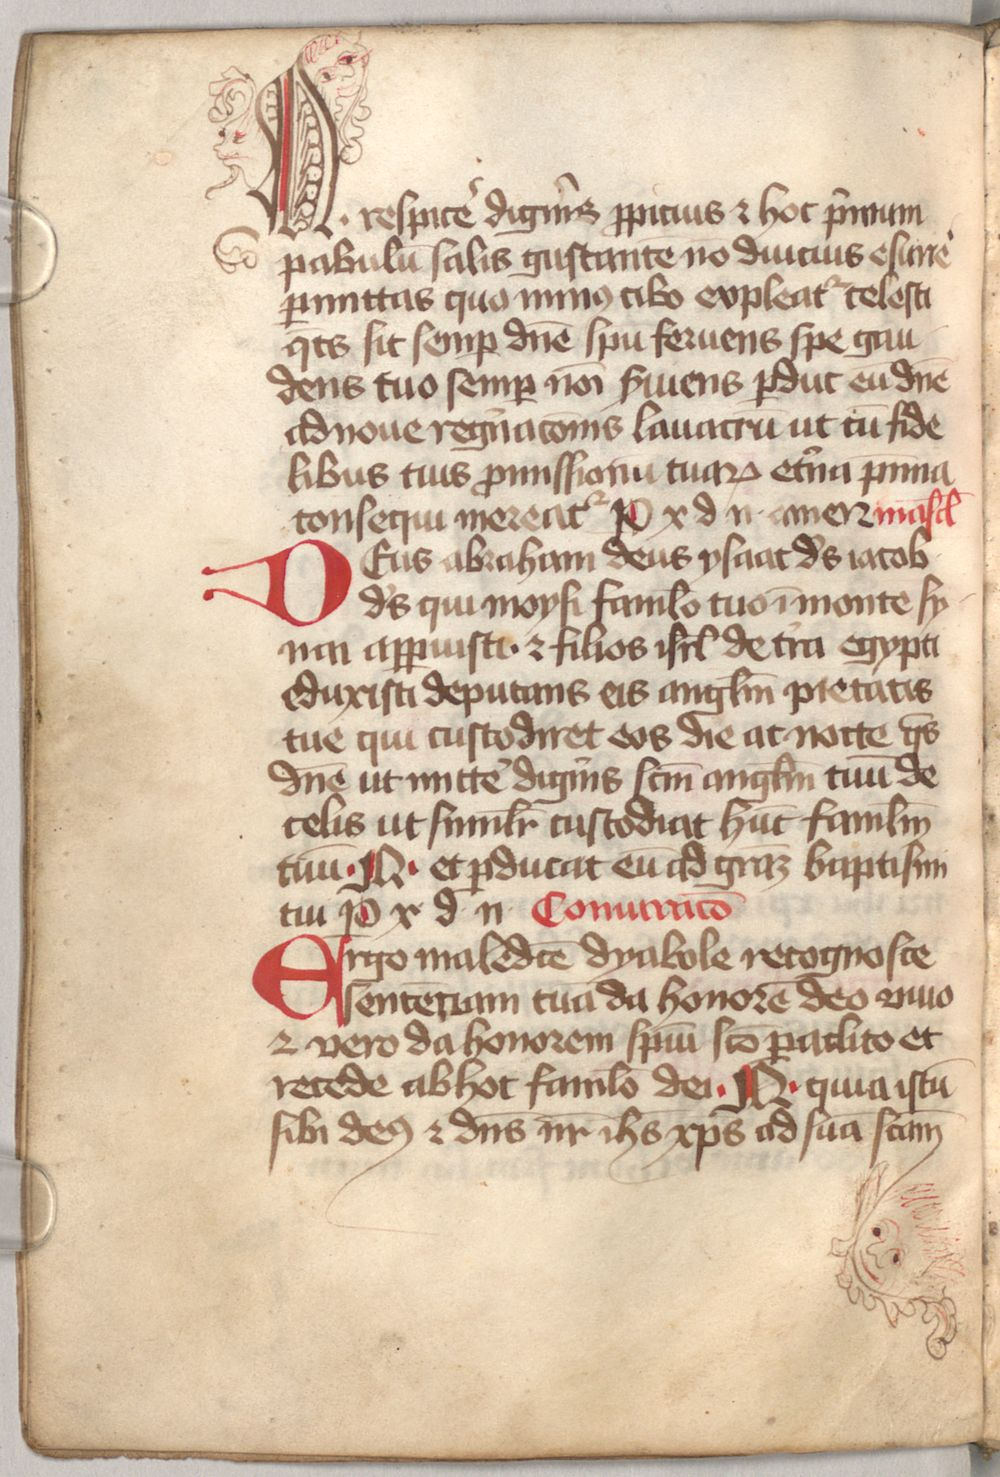 N. respice᷒ digne᷒is ꝓpicius ⁊ hoc p̄mum
pabulū salis gustantē nō diucius esurre᷒
ꝑmittas quo minꝰ cibo expleat᷑ celesti
qt̄s sit semꝑ dn̄e spū feruens spe gau
dens tuo semꝑ nōi s᷒uiens ꝑduc eū dn̄e
ad noue regn̄acōnis lauacrū ut cū fide
libus tuis ꝓmissionū tuaꝝ et᷒na p̄mia
consequi mereat᷑ P x d n amen mascl̄
Deus abraham deus ysaac ds̄ iacob
ds̄ qui moysi famlo tuo ī monte sy
nai aꝑuisti · ⁊ filios isrl̄ de tr̄a egypti
eduxisti deputans eis angl̄m pietatis
tue qui custodiret eos die ac nocte qs̄
dn̄e ut mitte᷒ digne᷒is scm̄ angl̄m tuū de
celis ut similr̄ custodiat hūc famlm̄
tuū · N · et ꝑducat eū ad gr̄aꝫ baptismi
tui P x d n Coniuracō
Ergo maledcē dyabole recognosce
sentenciam tuā da honorē deo viuo
⁊ vero da honorem spiū scō ꝑaclito et
recede ab hoc famlō dei · N · quia istū
sibi deꝰ ⁊ dn̄s nr̄ ihs̄ xp̄s ad suā scām